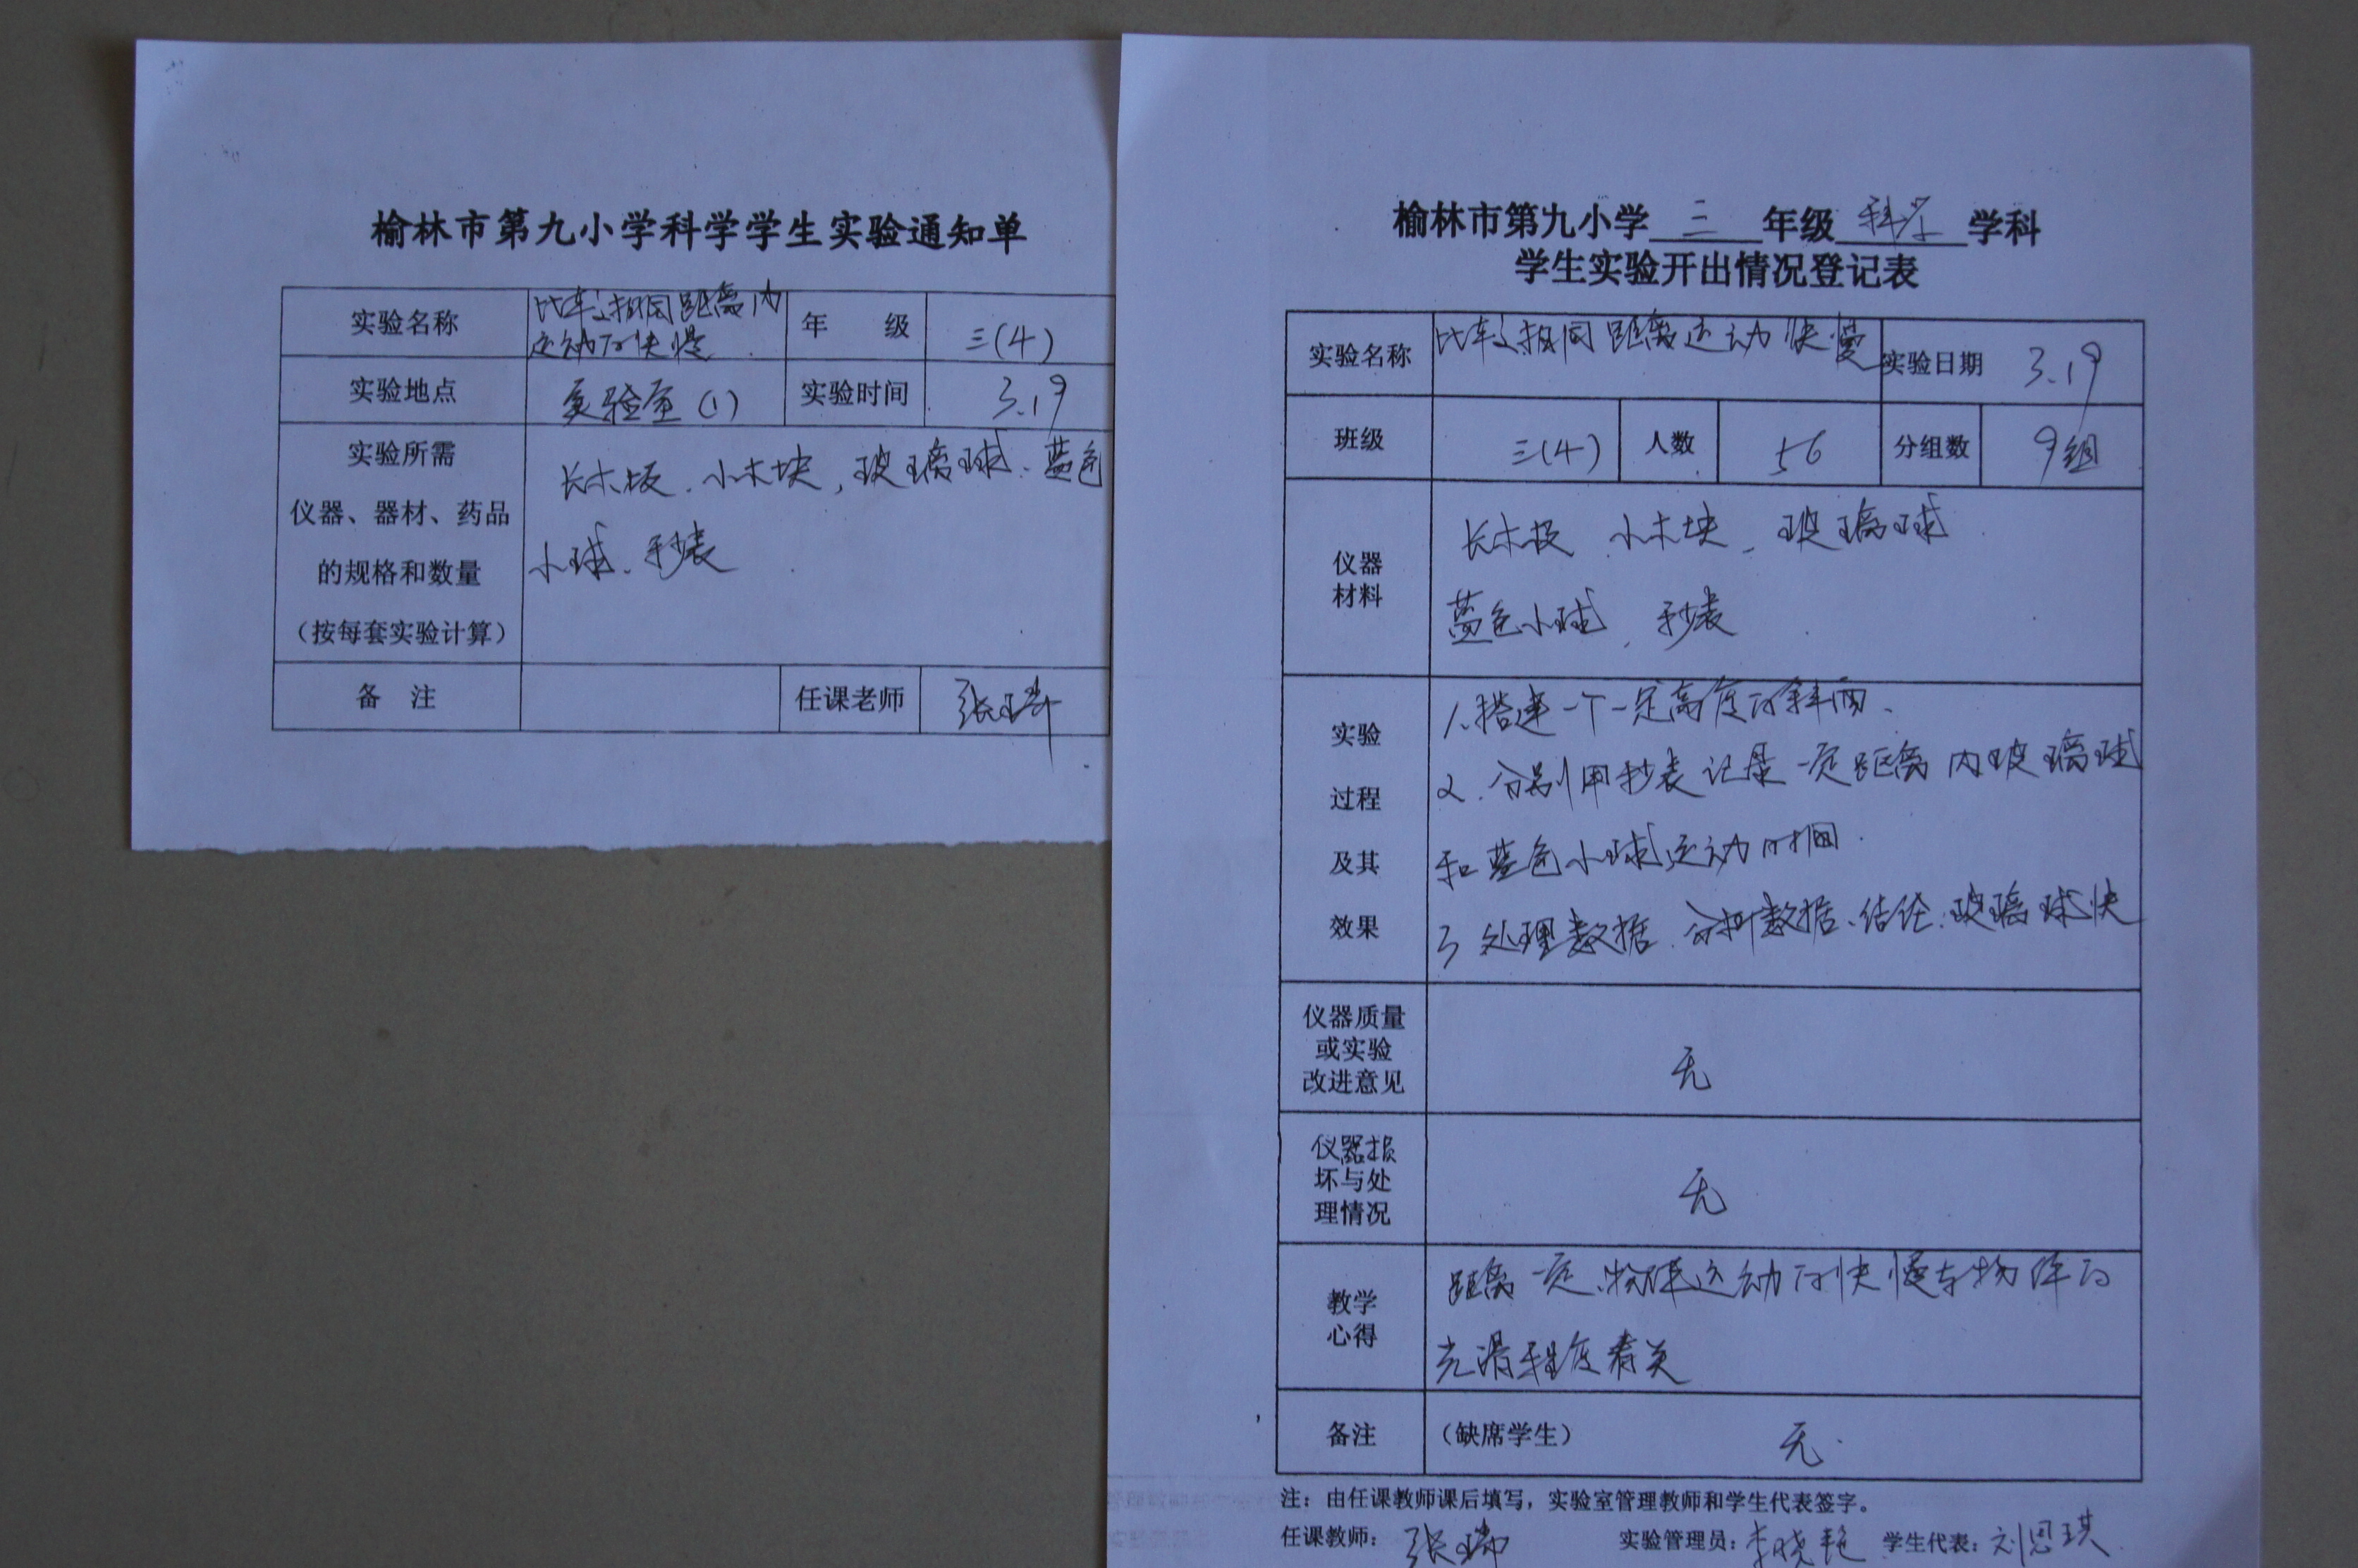 榆林市第九小学科学学生实验通知单
实验名称 比较相同距离内
运动的快慢
年 级 三(4)
实验地点 实验室(1) 实验时间 3.19
实验所需
仪器、器材、药品
的规格和数量
(按每套实验计算)
长木板、小木块,玻璃球、蓝色
小球、秒表
备 注 任课老师 张瑞
榆林市第九小学 三 年级 科学 学科
学生实验开出情况登记表
实验名称 比较相同距离运动快慢 实验日期 3.19
班级 三(4) 人数 56 分组数 9组
仪器
材料
长木板、小木块、玻璃球
蓝色小球、秒表
实验
过程
及其
效果
1.搭建一个一定高度的斜面、
2.分别用秒表记录一定距离内玻璃球
和蓝色小球运动时间.
3 处理数据、分析数据、结论:玻璃球快
仪器质量
或实验
改进意见
无
仪器损
坏与处
理情况
无
教学
心得
距离一定、物体运动的快慢与物体的
光滑程度有关
备注 (缺席学生) 无.
注:由任课教师课后填写,实验室管理教师和学生代表签字。
任课教师: 张瑞 实验管理员: 李晓艳 学生代表: 刘思琪